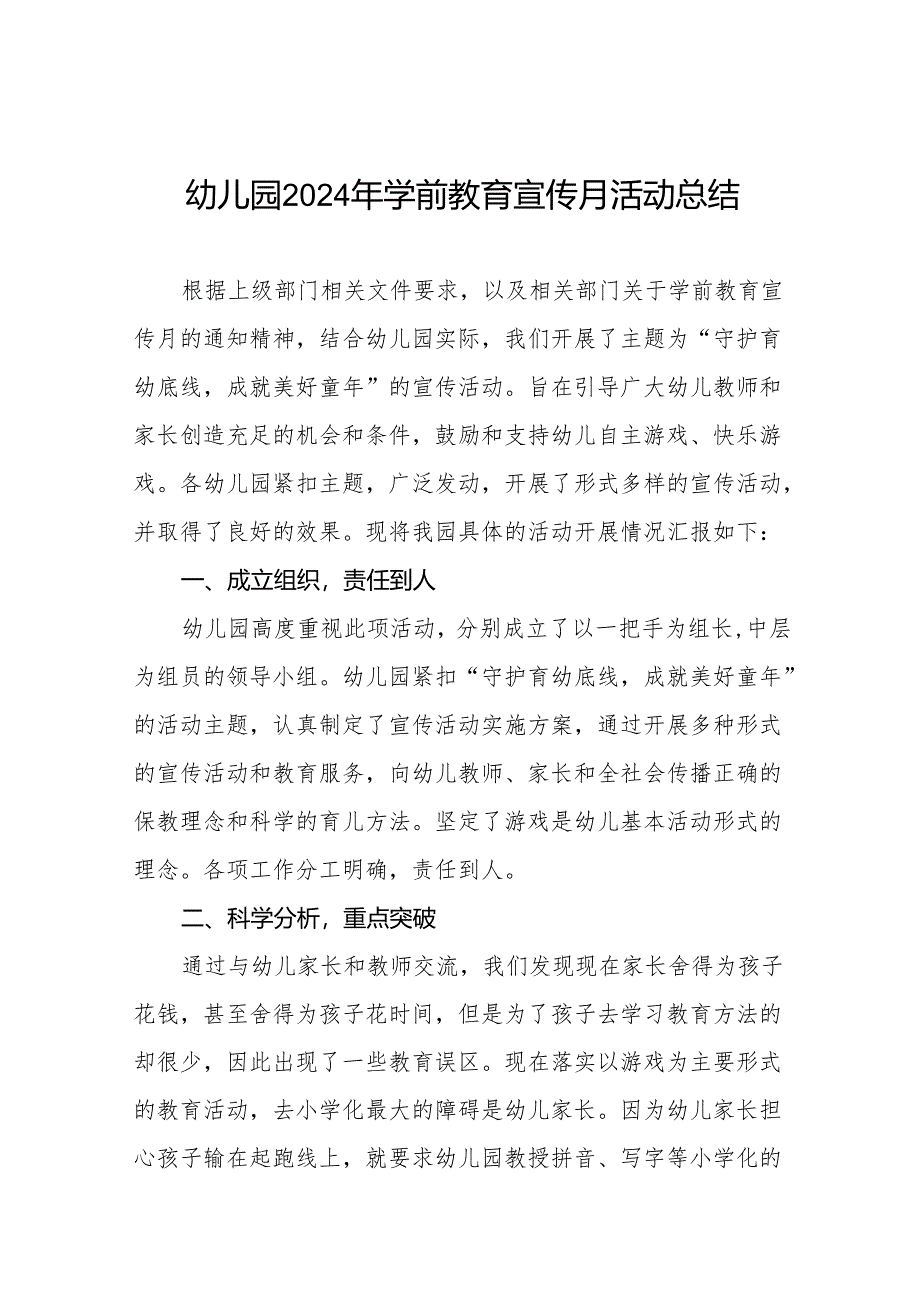 幼儿园2024年学前教育宣传月活动总结
根据上级部门相关文件要求，以及相关部门关于学前教育宣
传月的通知精神，结合幼儿园实际，我们开展了主题为“守护育
幼底线，成就美好童年”的宣传活动。旨在引导广大幼儿教师和
家长创造充足的机会和条件，鼓励和支持幼儿自主游戏、快乐游
戏。各幼儿园紧扣主题，广泛发动，开展了形式多样的宣传活动，
并取得了良好的效果。现将我园具体的活动开展情况汇报如下：
一、成立组织，责任到人
幼儿园高度重视此项活动，分别成立了以一把手为组长,中层
为组员的领导小组。幼儿园紧扣“守护育幼底线，成就美好童年”
的活动主题，认真制定了宣传活动实施方案，通过开展多种形式
的宣传活动和教育服务，向幼儿教师、家长和全社会传播正确的
保教理念和科学的育儿方法。坚定了游戏是幼儿基本活动形式的
理念。各项工作分工明确，责任到人。
二、科学分析，重点突破
通过与幼儿家长和教师交流，我们发现现在家长舍得为孩子
花钱，甚至舍得为孩子花时间，但是为了孩子去学习教育方法的
却很少，因此出现了一些教育误区。现在落实以游戏为主要形式
的教育活动，去小学化最大的障碍是幼儿家长。因为幼儿家长担
心孩子输在起跑线上，就要求幼儿园教授拼音、写字等小学化的